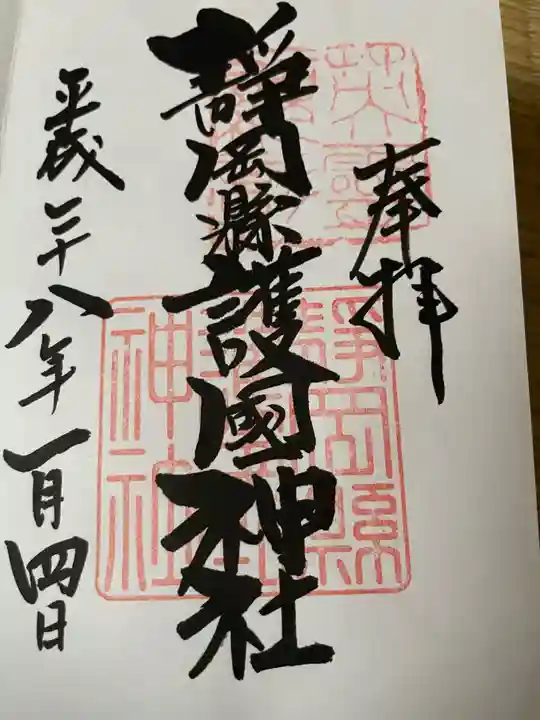 奉拝
靜岡縣護國神社
平成二十八年一月四日
靜岡縣
護國
神社